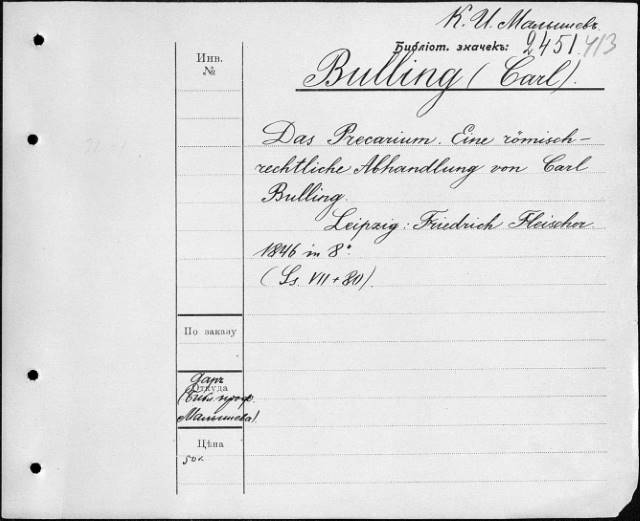 К. И. Малышевъ.
Библіот. значекъ: 2451 413
Инв.
№
Bulling (Carl).
Das Precarium. Eine römisch-
rechtliche Abhandlung von Carl
Bulling.
Leipzig: Friedrich Fleischer.
1846 in 8°
(Ss. VII + 80).
По заказу
Даръ
Откуда
(библ. проф.
Малышева).
Цѣна
50к